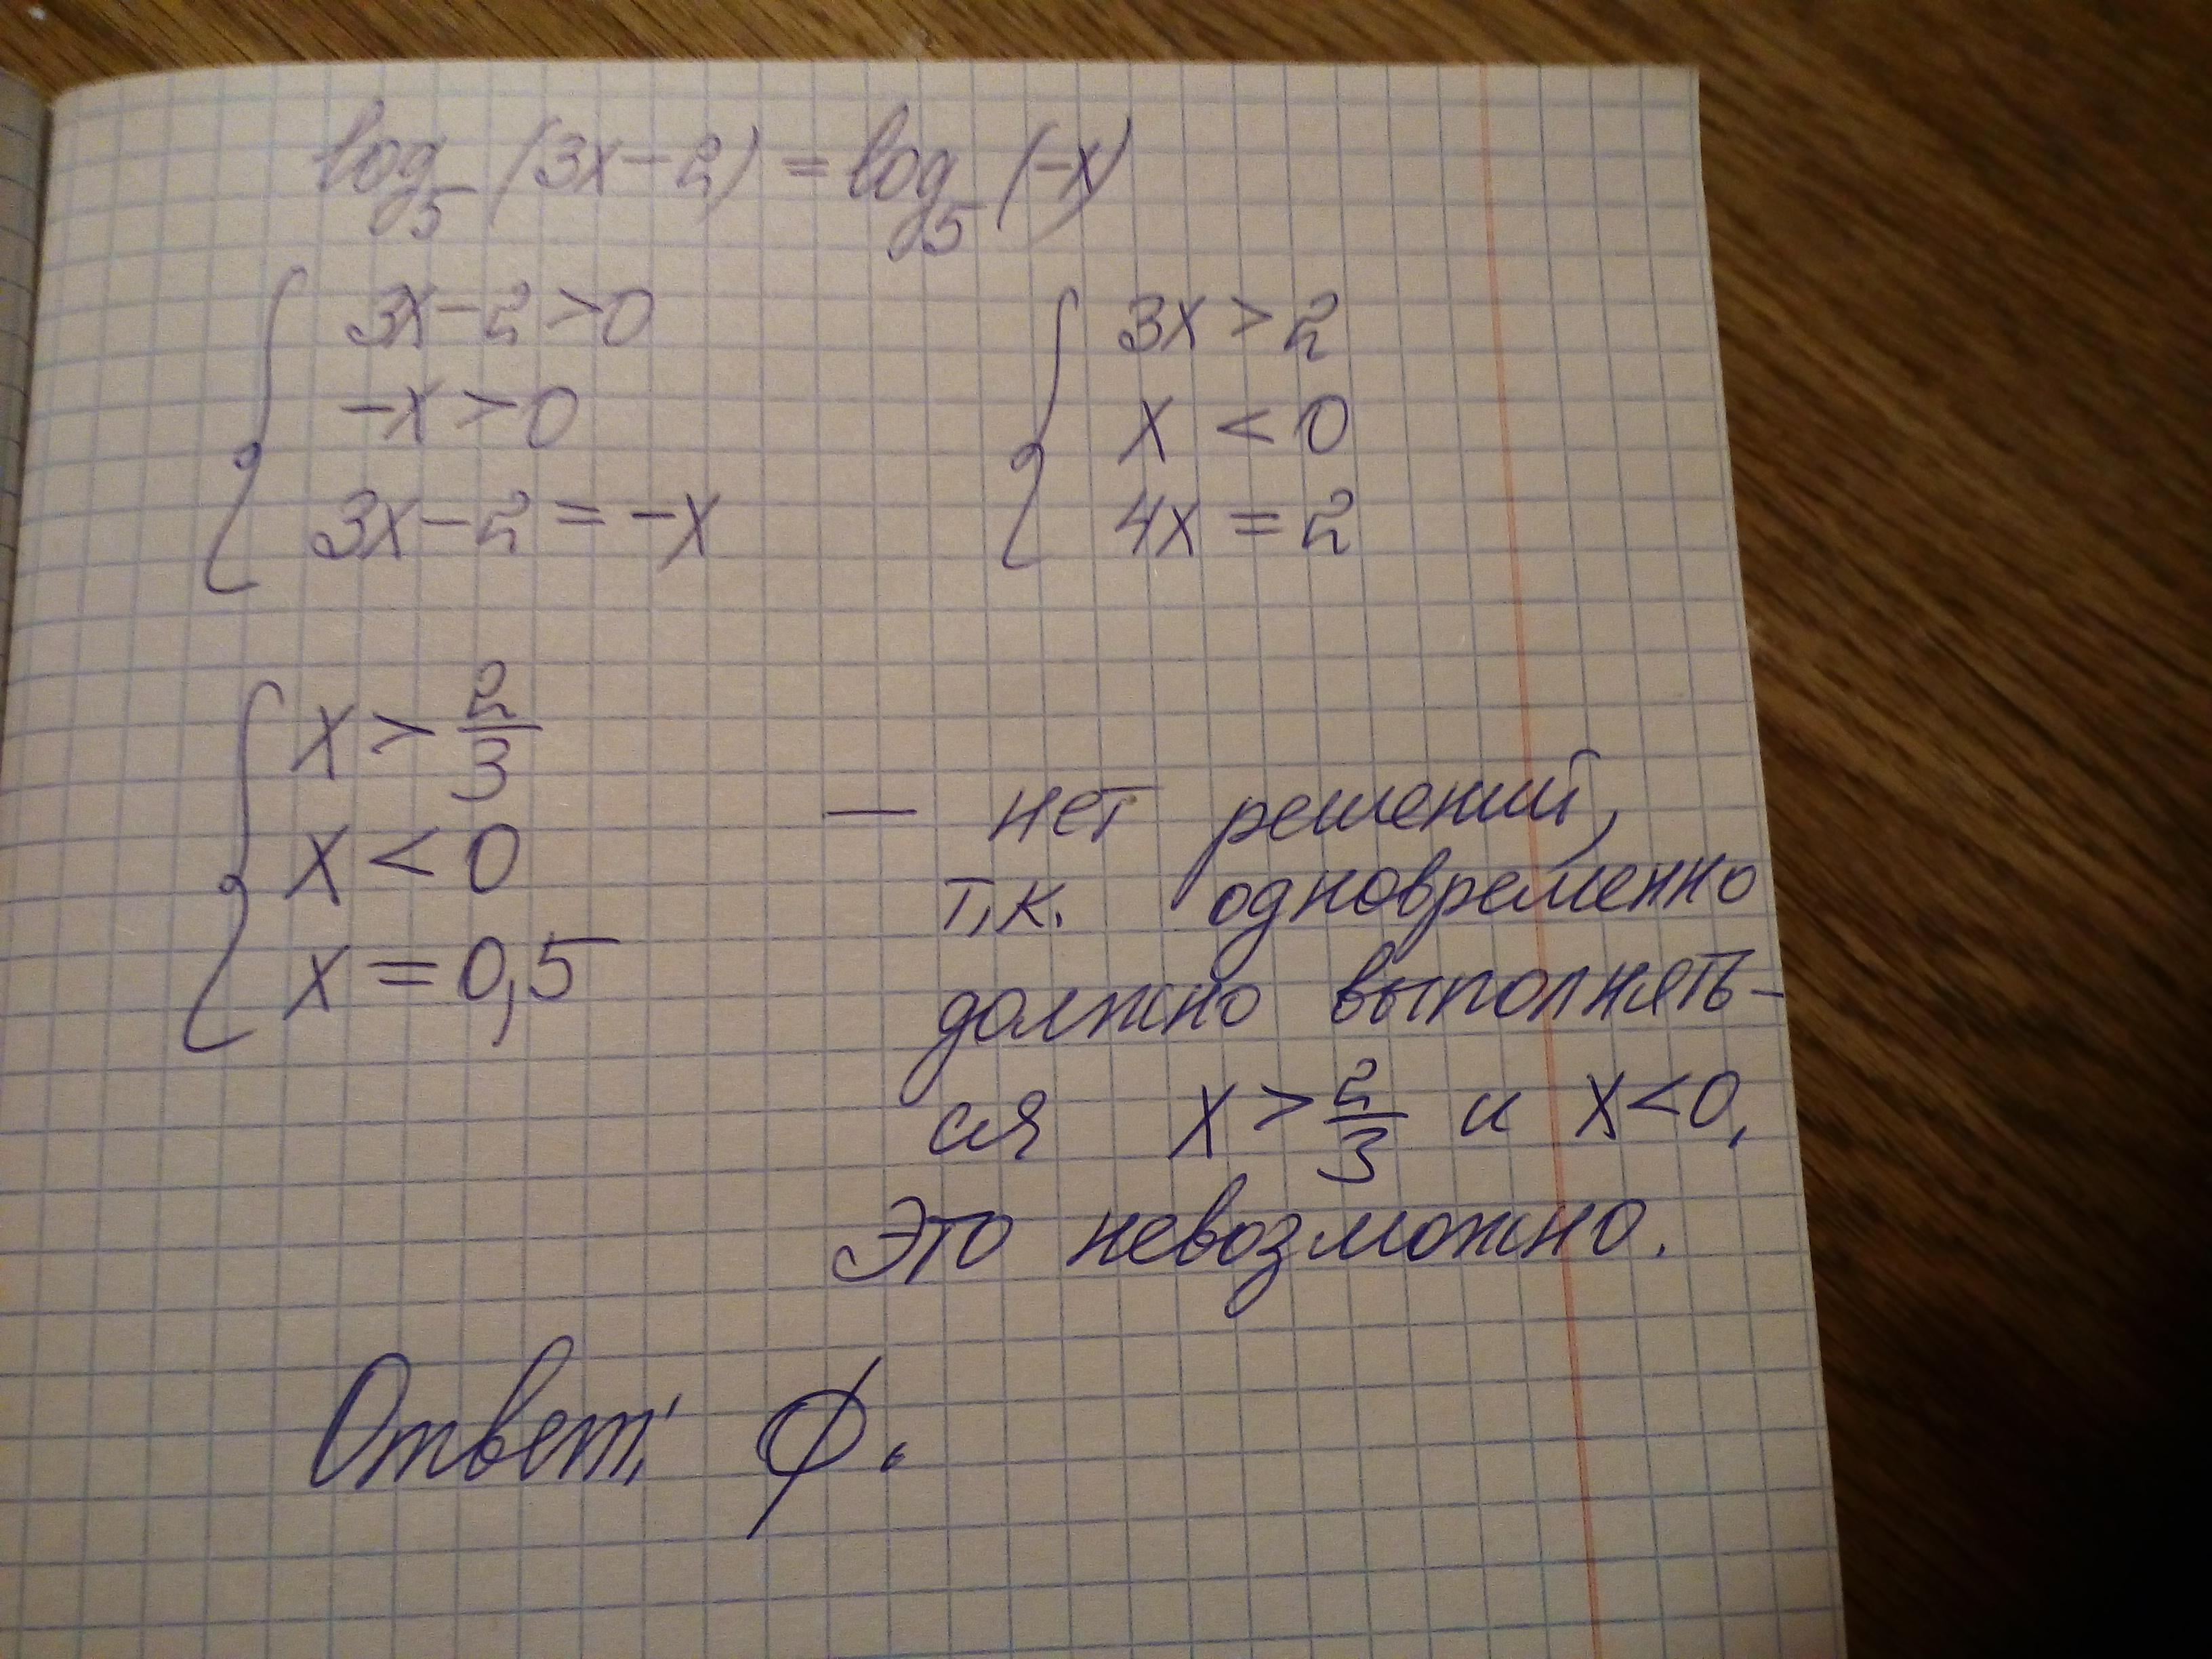 log₅ (3x − 2) = log₅ (−x)
3x − 2 > 0
−x > 0
3x − 2 = −x
3x > 2
x < 0
4x = 2
x > 2/3
x < 0
x = 0,5
— нет решений,
т.к. одновременно
должно выполнять-
ся x > 2/3 и x < 0,
Это невозможно.
Ответ: ∅.